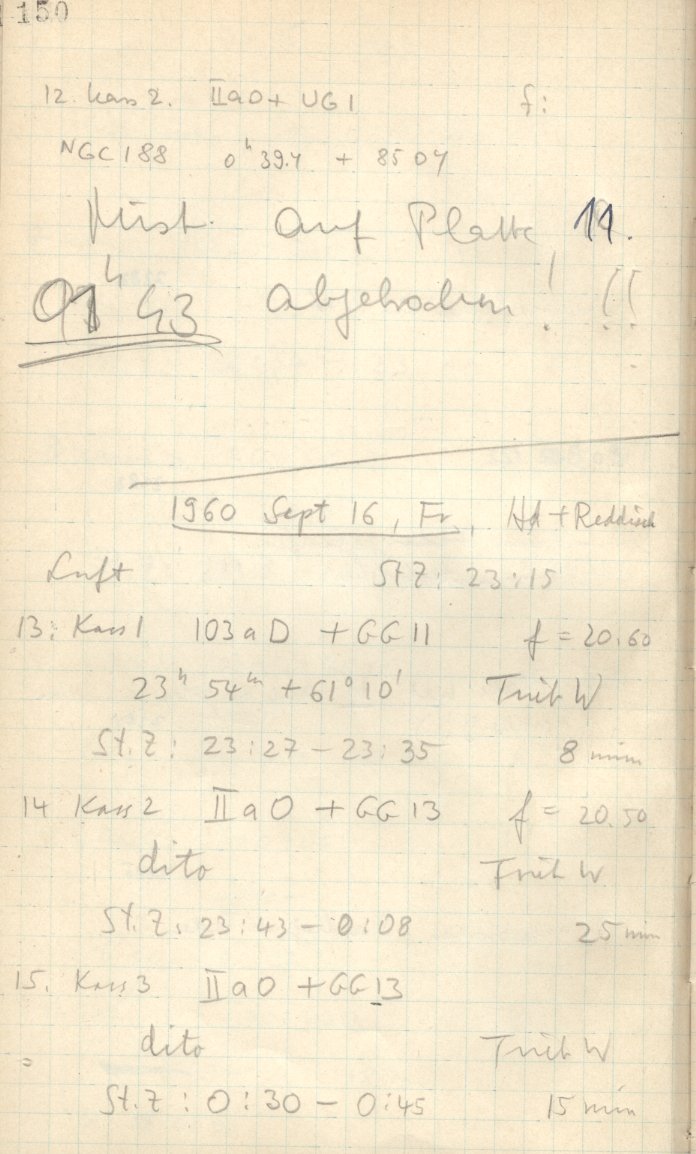 150
12. Kass 2. IIaO + UG 1 f:
NGC 188 0ʰ 39.4 + 85 04
Mist. auf Platte 11.
01ʰ 43 abgehoben! !!
1960 Sept 16, Fr., Hd + Reddisch
Luft St Z: 23:15
13. Kass 1 103aD + GG 11 f = 20.60
23ʰ 54ᵐ + 61° 10' Trieb W
St. Z: 23:27 – 23:35 8 min
14 Kass 2 IIaO + GG 13 f = 20.50
dito Trieb W
St. Z: 23:43 – 0:08 25 min
15. Kass 3 IIaO + GG 13
dito Trieb W
St. Z: 0:30 – 0:45 15 min